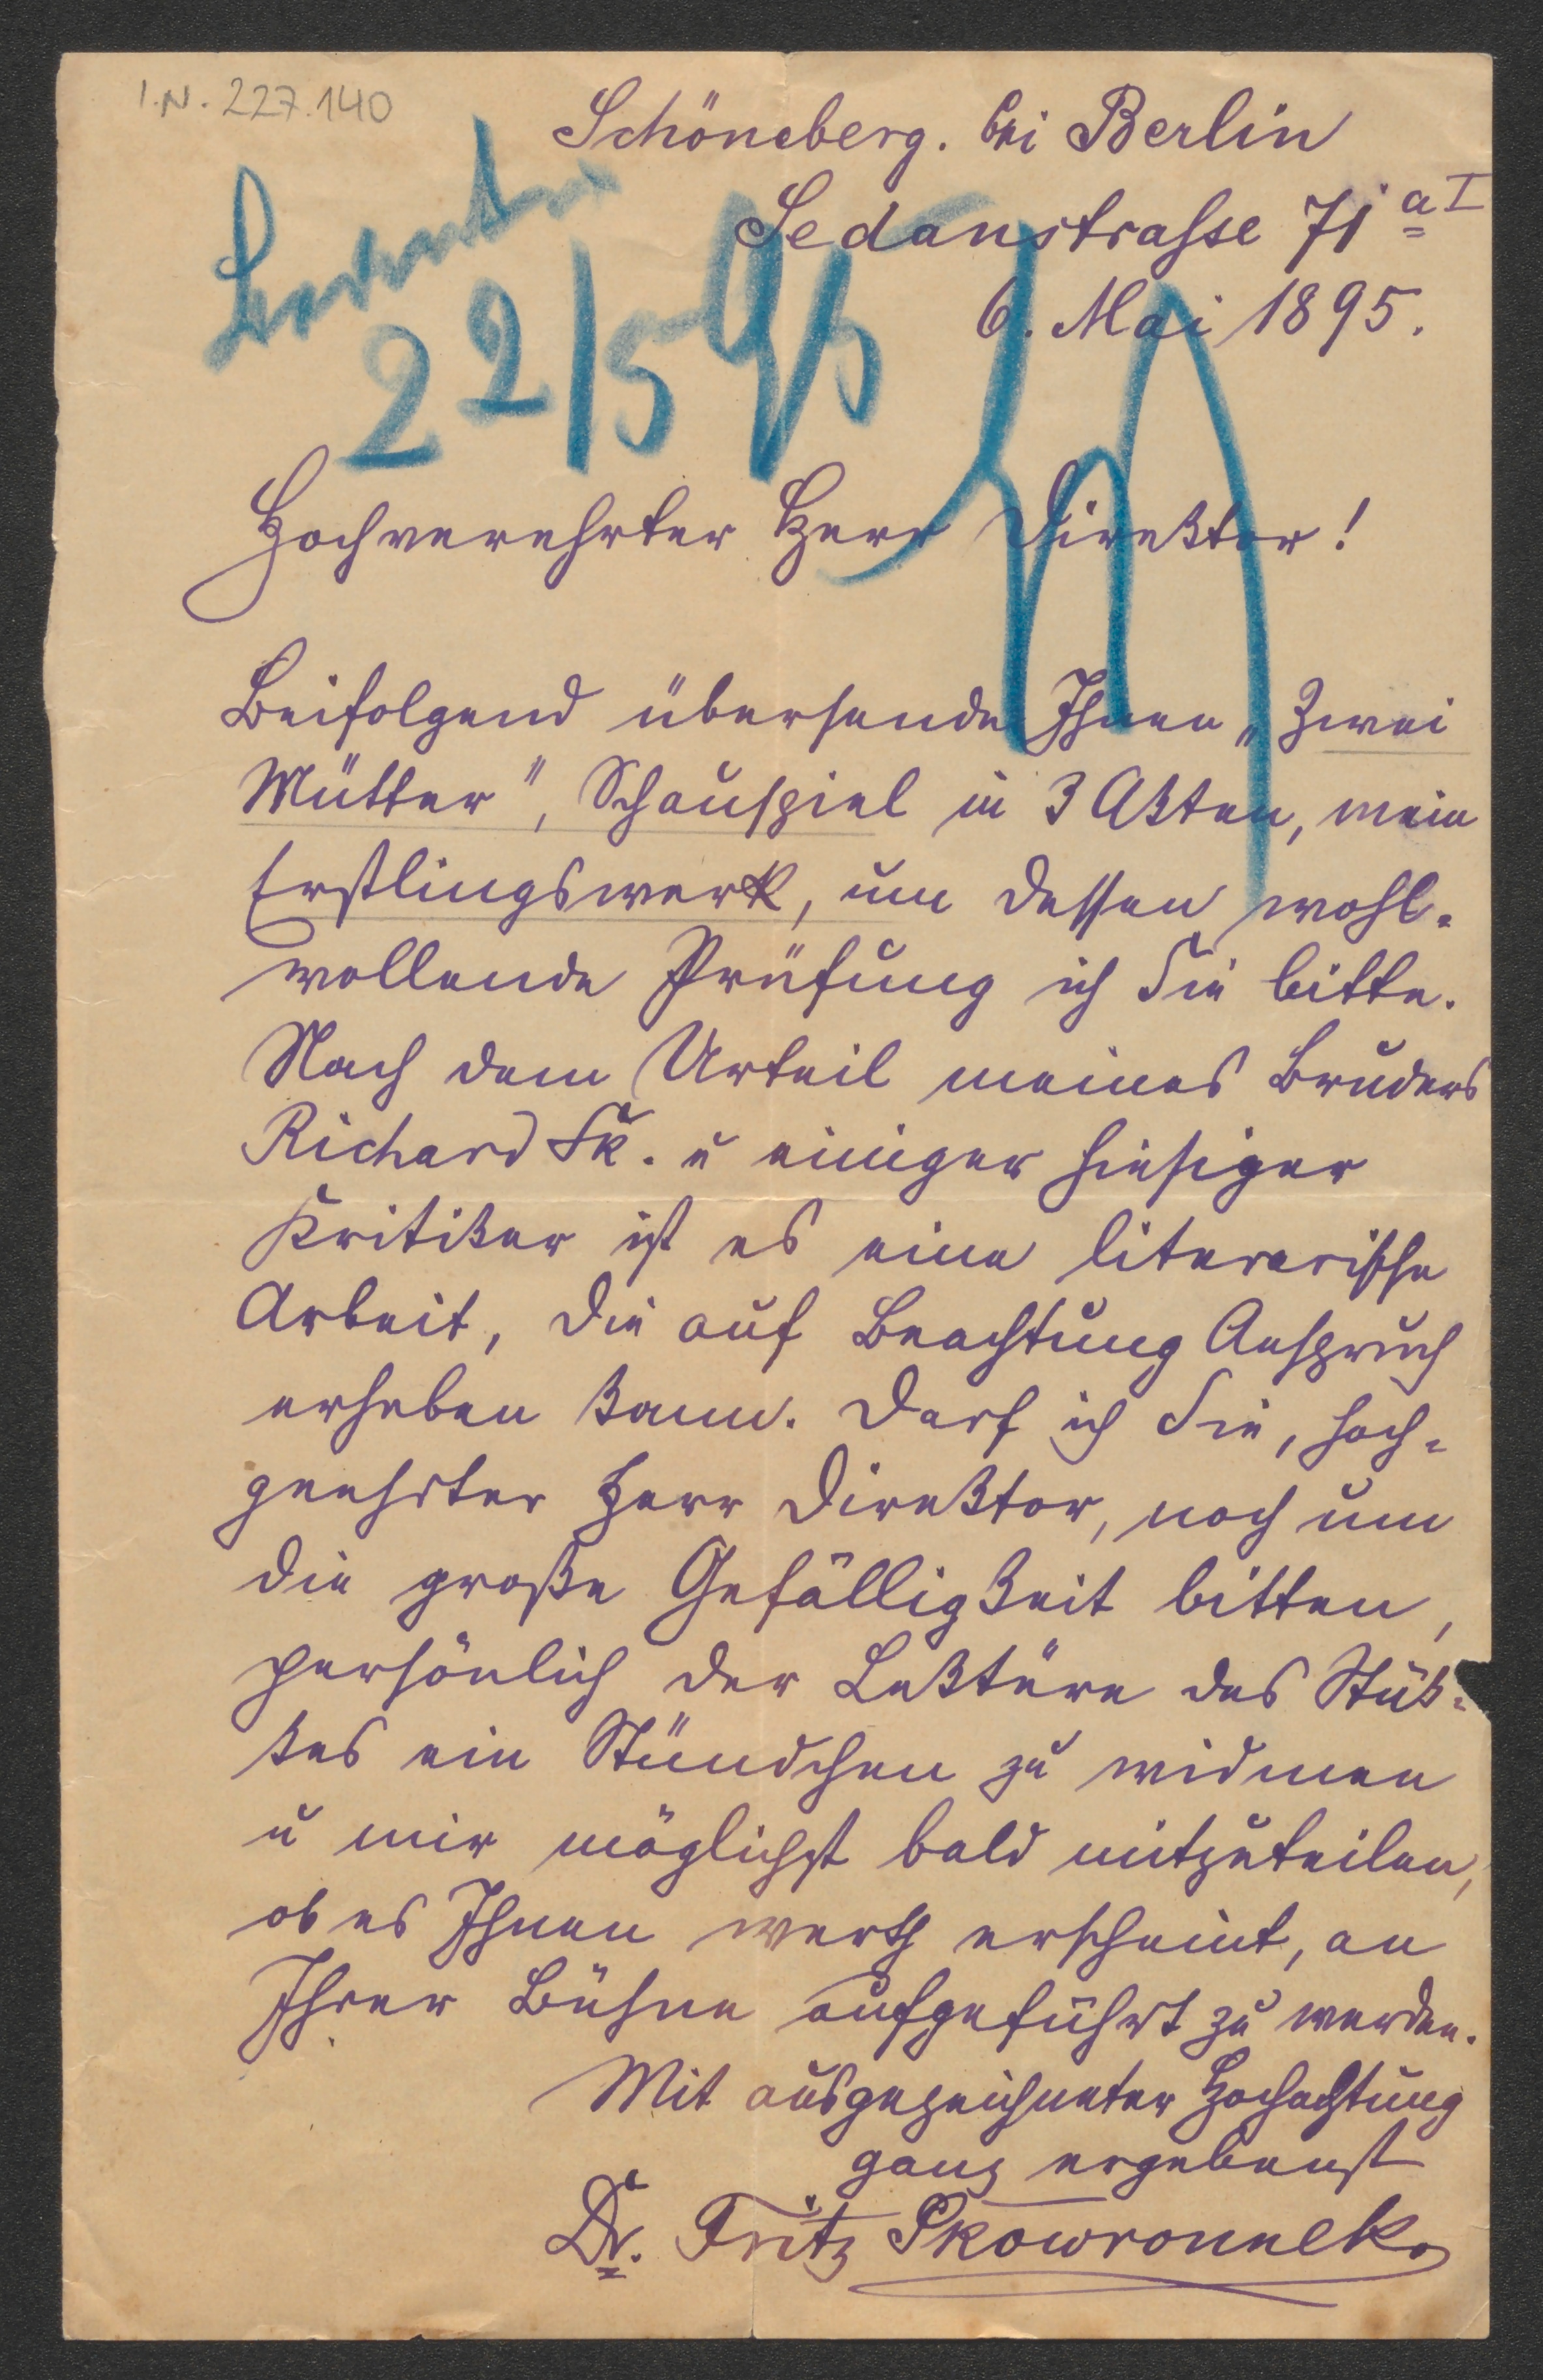 I.N. 227.140
Schöneberg. bei Berlin
Sedanstrasse 71 a I
6. Mai 1895.
22/5 95
Hochverehrter Herr Direktor!
Beifolgend übersende Ihnen „Zwei
Mütter", Schauspiel in 3 Akten, mein
Erstlingswerk, um dessen wohl-
wollende Prüfung ich Sie bitte.
Nach dem Urteil meines Bruders
Richard Sk. u einiger hiesiger
Kritiker ist es eine literarische
Arbeit, die auf Beachtung Anspruch
erheben kann. Darf ich Sie, hoch-
geehrter Herr Direktor, noch um
die große Gefälligkeit bitten,
persönlich der Lektüre des Stük-
kes ein Stündchen zu widmen
u mir möglichst bald mitzuteilen,
ob es Ihnen werth erscheint, an
Ihrer Bühne aufgeführt zu werden.
Mit ausgezeichneter Hochachtung
ganz ergebenst
Dr. Fritz Skowronnek